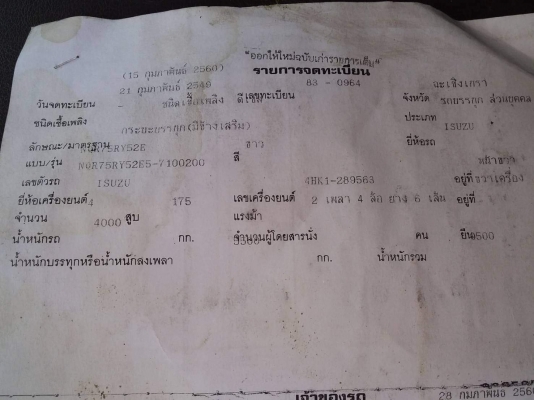 "ออกให้ใหม่ฉบับเก่ารายการเต็ม"
(15 กุมภาพันธ์ 2560) รายการจดทะเบียน
21 กุมภาพันธ์ 2546 83 - 0964 ฉะเชิงเทรา
วันจดทะเบียน - ชนิดเชื้อเพลิง ดีเซล เลขทะเบียน จังหวัด รถบรรทุก ส่วนบุคคล
ชนิดเชื้อเพลิง ประเภท
กระบะบรรทุก(มีข้างเสริม) ISUZU
ลักษณะ/มาตรฐาน NQR75RY52E ขาว ยี่ห้อรถ
แบบ/รุ่น NQR75RY52E5-7100200 สี
เลขตัวรถ ISUZU 4HK1-289563 อยู่ที่ ขวาเครื่อง
ยี่ห้อเครื่องยนต์ 4 175 เลขเครื่องยนต์ 2 เพลา 4 ล้อ ยาง 6 เส้น อยู่ที่
จำนวน 4000 สูบ แรงม้า
น้ำหนักรถ กก. จำนวนผู้โดยสาร นั่ง คน ยืน
น้ำหนักบรรทุกหรือน้ำหนักลงเพลา กก. น้ำหนักรวม
เจ้าของรถ 28 กุมภาพันธ์